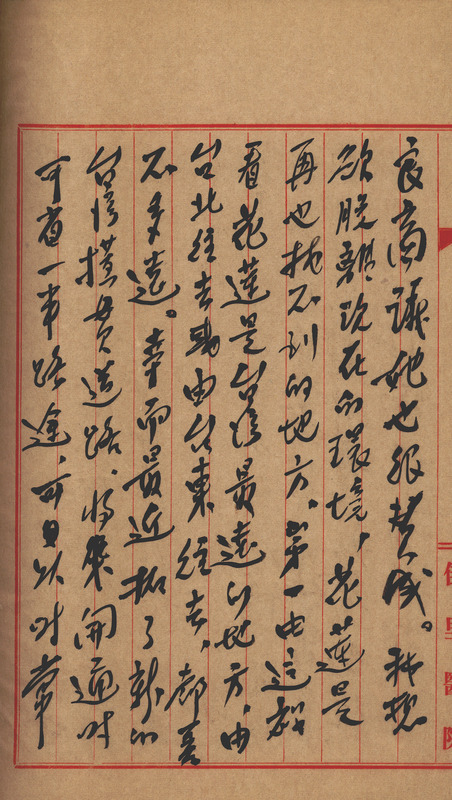 良商議她也很贊成。我想
欲脫離現在的環境，花蓮是
再也找不到的地方，第一由這裡
看花蓮是台湾最遠的地方，由
台北往去或由台東往去，都差
不多遠。幸而最近拓了新的
台湾横貫道路，將來開通時
可省一半路途，可以時常
醫院